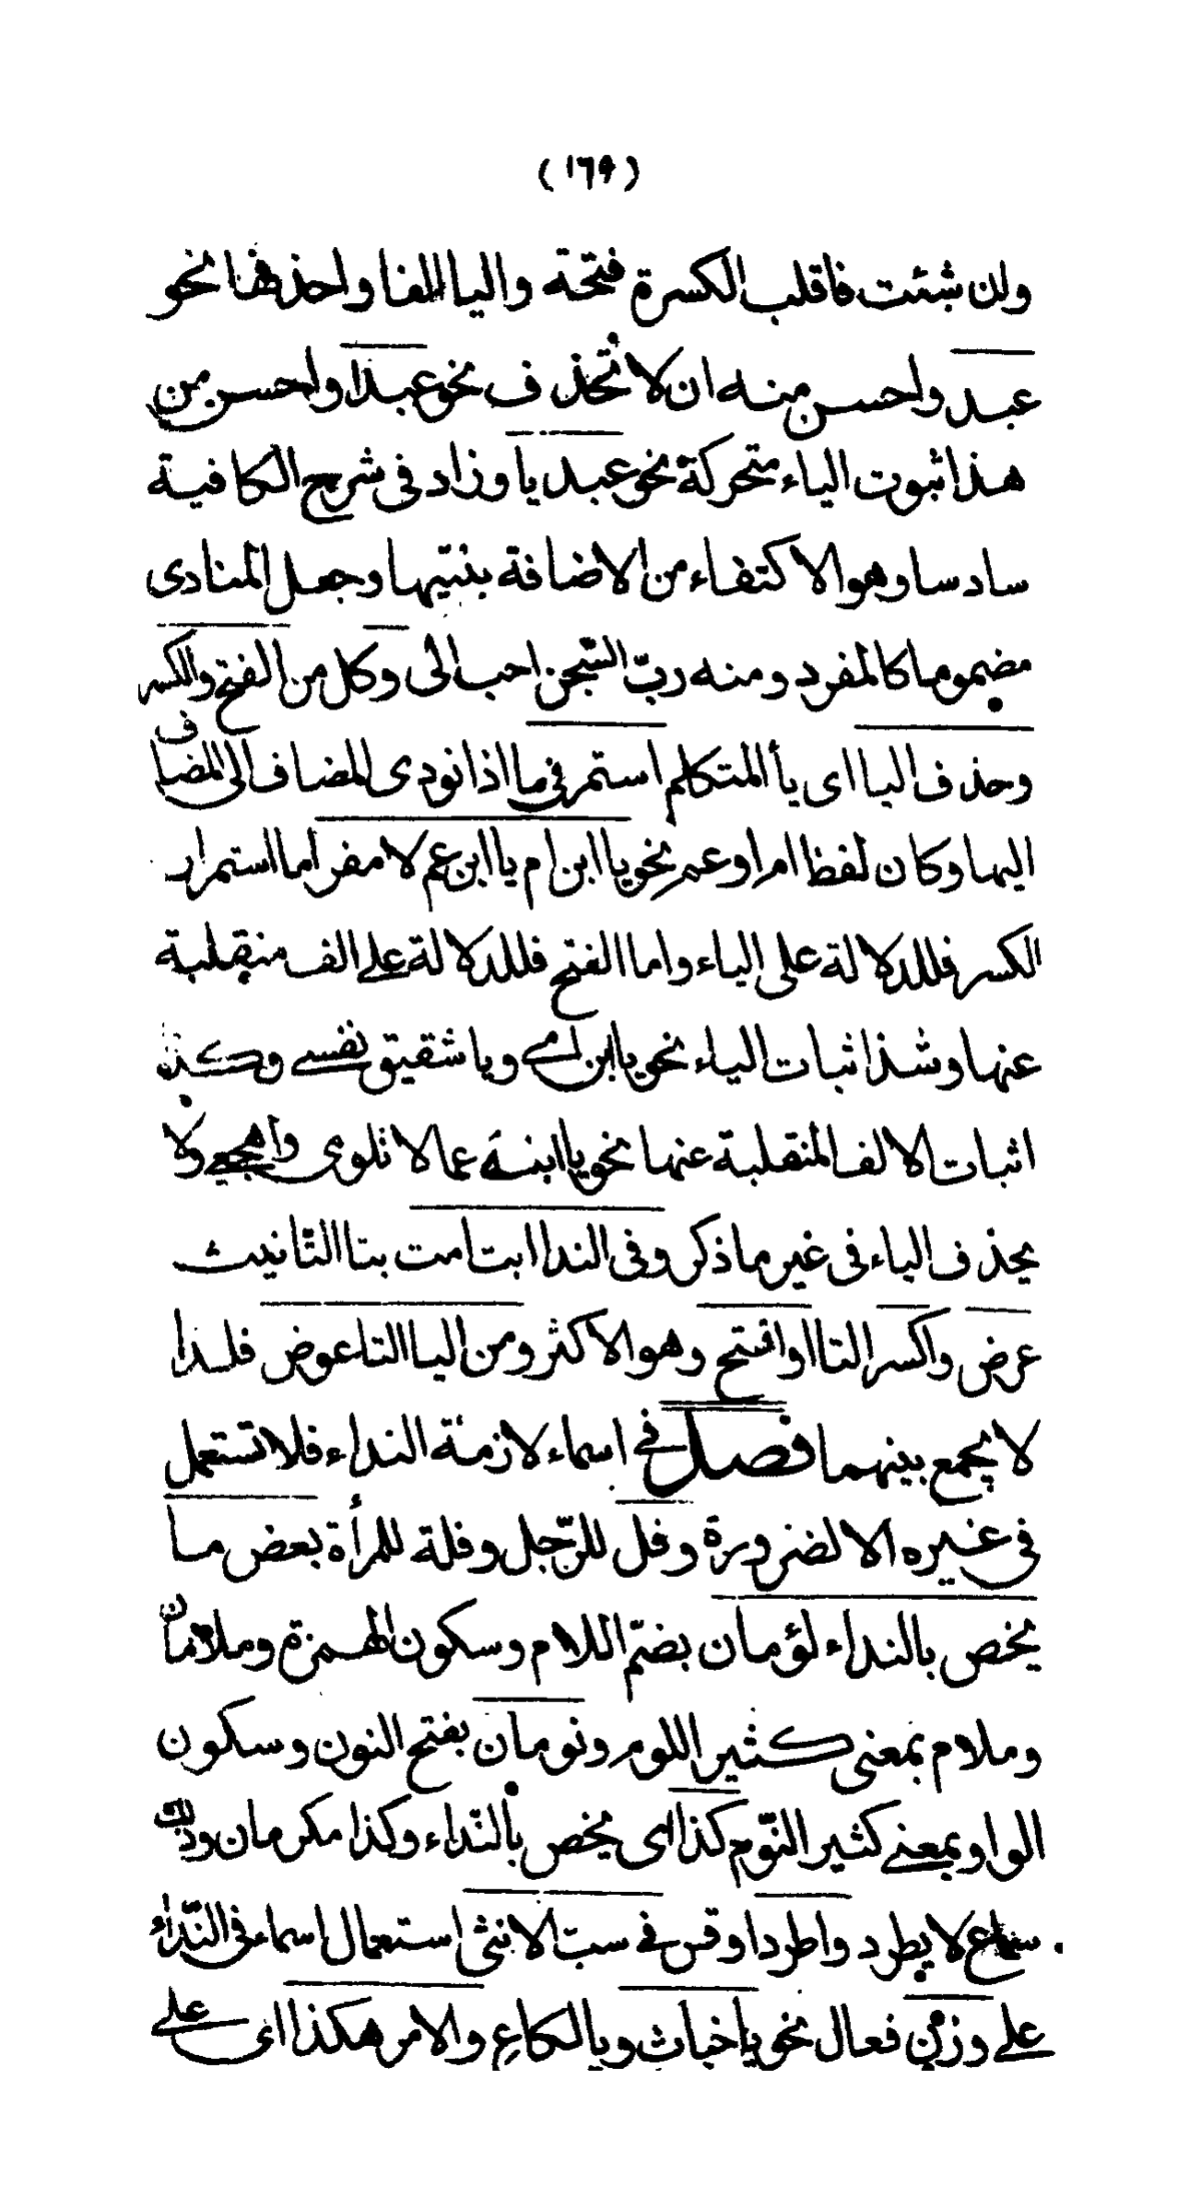 (١٦٩)
وان شئت فاقلب الكسرة فتحة واليا الفا واحذفها نحو
عبد واحسن منه ان لا تحذف نحو عبدا واحسن من
هذا ثبوت الياء متحركة نحو عبد يا وزاد فى شرح الكافية
سادسا وهو الاكتفاء من الاضافة بنيتها وجعل المنادى
مضموما كالمفرد ومنه ربّ السّجن احب الى وكل من الفتح والكسر
وحذف اليا اى يأ المتكلم استمر فى ما اذا نودى المضاف الى المضاف
اليها وكان لفظ ام او عم نحو يا ابن ام يا ابن عم لا مفر اما استمرار
الكسر فللدلالة على الياء واما الفتح فللدلالة على الف منقلبة
عنها وشذ اثبات الياء نحو يا ابن امى ويا شقيق نفسى وكذا
اثبات الالف المنقلبة عنها نحو يا ابنة عما لا تلومى واهجعى ولا
يحذف الياء فى غير ما ذكر وفى الندا ابت امت بتا التّانيث
عرض واكسر التا او افتح وهو الاكثر ومن اليا التا عوض فلذا
لا يجمع بينهما فصل فى اسماء لازمة النداء فلا تستعمل
فى غيره الا لضرورة وفل للرّجل وفلة للمرأة بعض ما
يخص بالنداء لؤمان بضمّ اللام وسكون الهمزة وملامان
وملام بمعنى كثير اللوم ونومان بفتح النون وسكون
الواو بمعنى كثير النّوم كذا اى يخص بالنّداء وكذا مكرمان وذلك
سماع لا يطرد واطردا وقس فى سبّ الانثى استعمال اسماء فى النّداء
على وزن فعال نحو يا خباث ويا لكاع والامر هكذا اى على